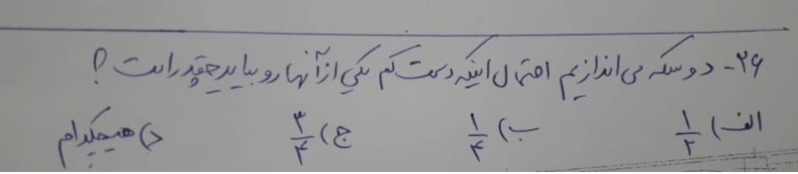 ۲۶- دو سکه می اندازیم احتمال اینکه دست کم یکی از آنها رو بیاید چقدر است ؟
الف) ۱/۲ ب) ۱/۴ ج) ۳/۴ د) هیچکدام